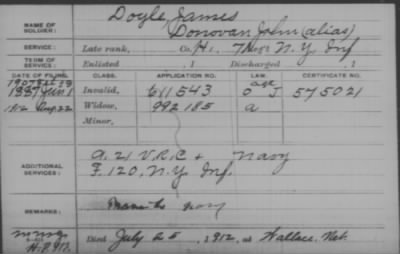 NAME OF SOLDIER: Doyle, James
Donovan, John (alias)
SERVICE: Late rank, Co. H, 7 N.Y. Inf
TERM OF SERVICE: Enlisted , 1 Discharged , 1
DATE OF FILING. CLASS. APPLICATION NO. LAW. CERTIFICATE NO.
1887 Jun 1 Invalid, 611,543 J 575021
1912 Aug 22 Widow, 992185 a
Minor,
ADDITIONAL SERVICES: A. 21 V.R.C + Navy
F. 120, N.Y. Inf.
REMARKS: navy
Died July 25, 1912, at Wallace, Neb.